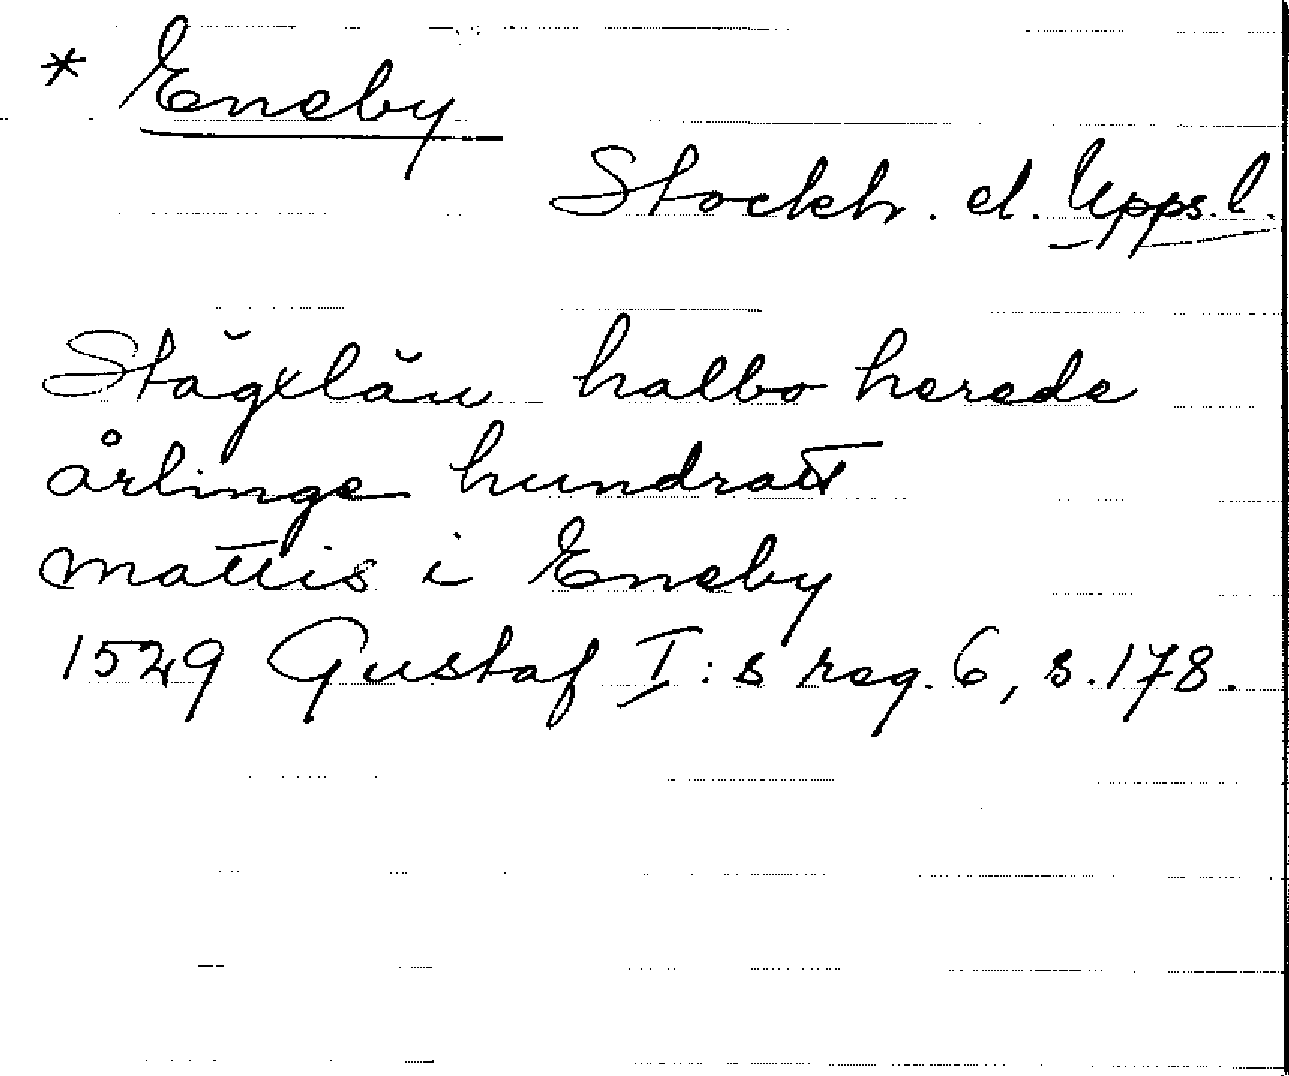 * Eneby
Stockh. el. Upps. l.
Stăgxlău halbo herede
årlinge hundratt
mattis i Eneby
1529 Gustaf I:s reg. 6, s. 178.